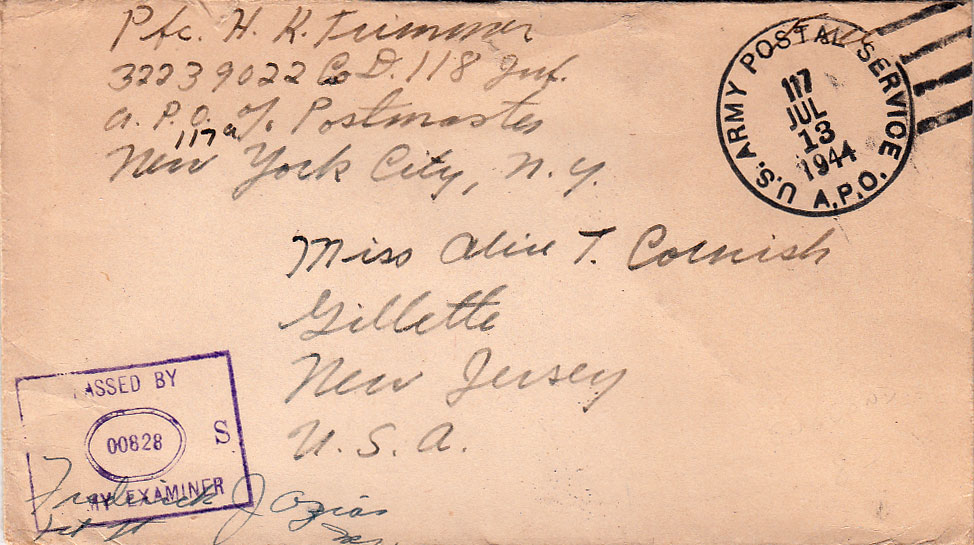 Pfc. H. K. Trimmer
32239022 Co D. 118 Inf.
A. P. O. % Postmaster
117a
New York City, N. Y.
U.S. ARMY POSTAL SERVICE
117
JUL
13
1944
A.P.O.
Miss Alice T. Cornish
Gillette
New Jersey
U. S. A.
PASSED BY
00828
S
ARMY EXAMINER
Frederick J Ozias
1st Lt